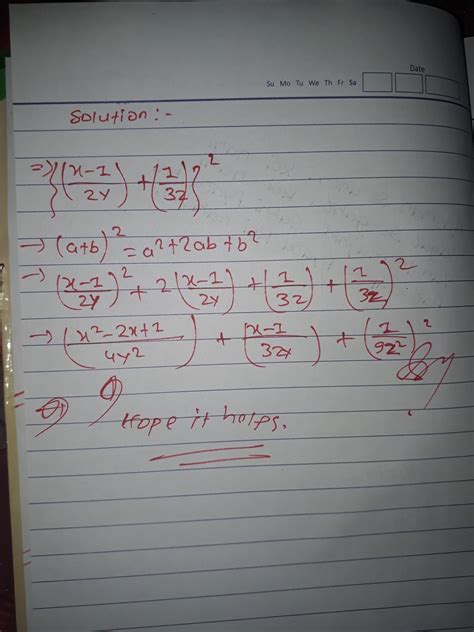 Date
Su Mo Tu We Th Fr Sa
Solution :-
=> {((x-1)/2y) + (1/3z)}²
→ (a+b)² = a²+2ab+b²
→ ((x-1)/2y)² + 2((x-1)/2y) + (1/3z) + (1/3z)²
→ ((x²-2x+1)/4y²) + ((x-1)/3zy) + (1/9z²)²
Hope it helps.